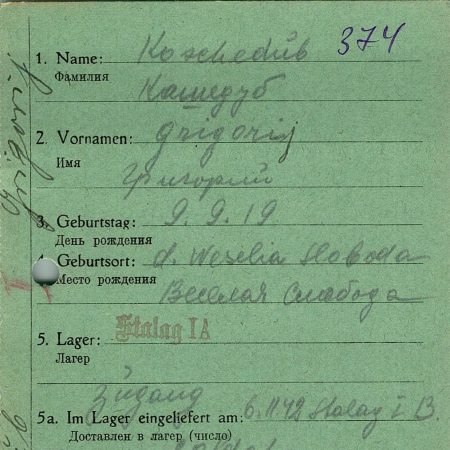 374
1. Name: Koschedub
Фамилия
Кашедуб
2. Vornamen: Grigorij
Имя
Григорий
3. Geburtstag: 9. 9. 19
День рождения
4. Geburtsort: d. Weselia Sloboda
Место рождения
Веселая Слабода
5. Lager: Stalag IA
Лагерь
Zugang
5a. Im Lager eingeliefert am: 6.11 42 Stalag I B.
Доставлен в лагерь (число)